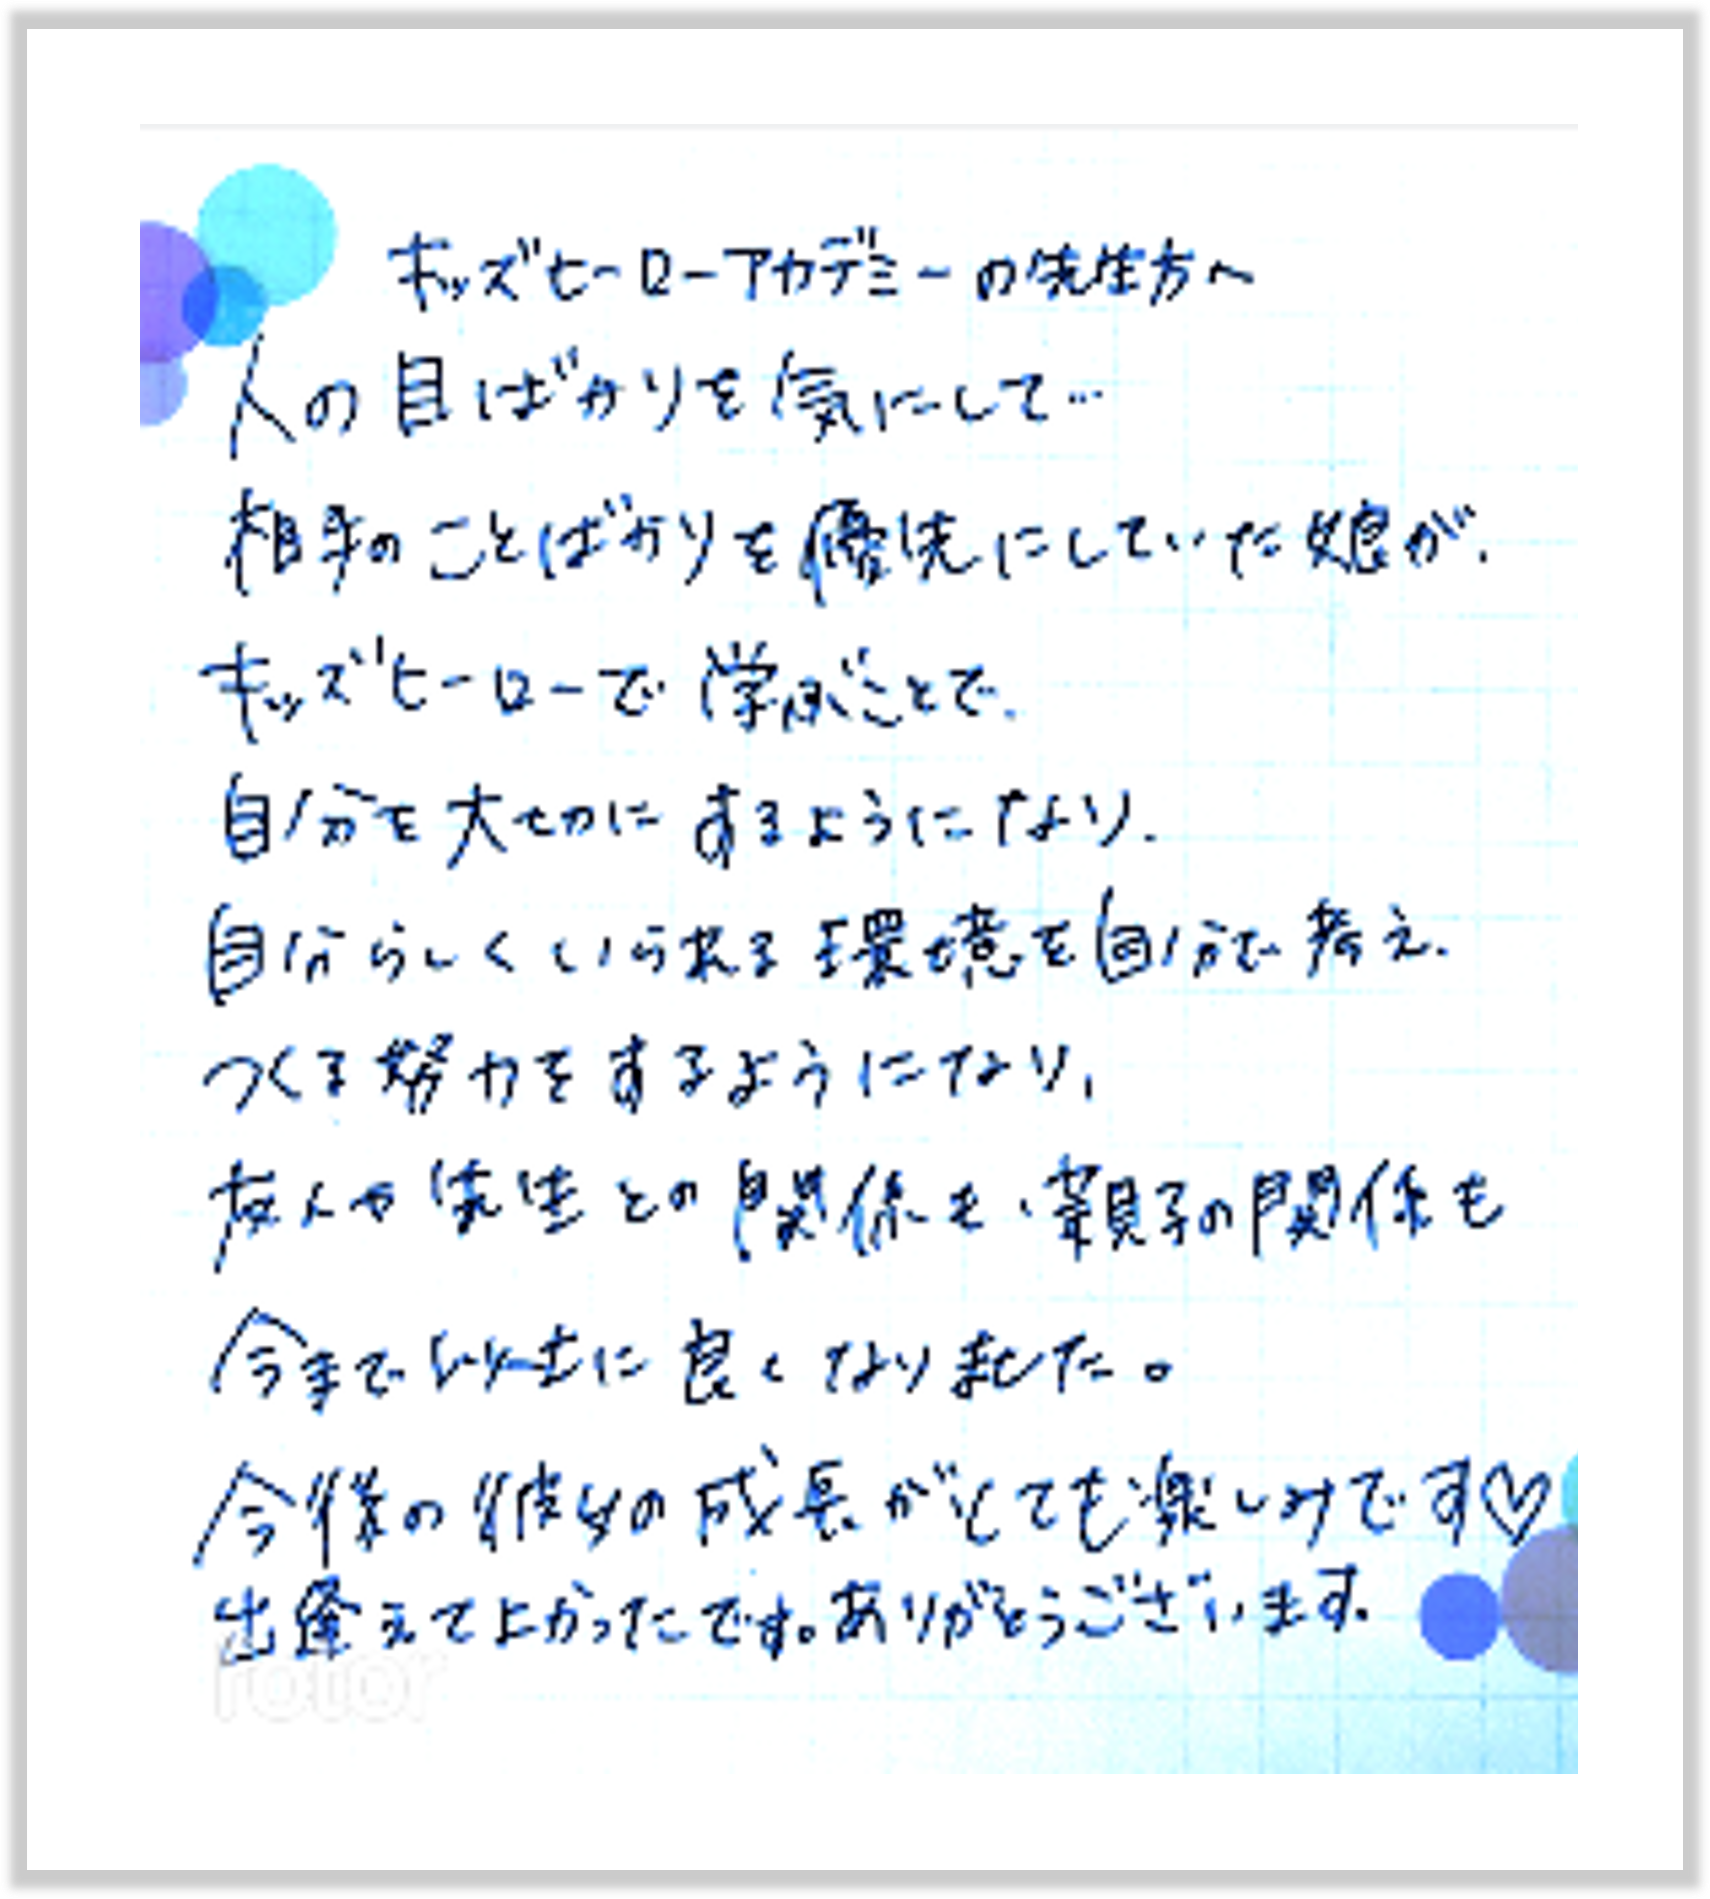 キッズヒーローアカデミーの先生方へ
人の目ばかりを気にして…
相手のことばかりを優先にしていた娘が、
キッズヒーローで学ぶことで、
自分を大切にするようになり、
自分らしくいられる環境を自分で考え、
つくる努力をするようになり、
友人や先生との関係も、親子の関係も
今まで以上に良くなりました。
今後の彼女の成長がとても楽しみです♡
出逢えてよかったです。ありがとうございます。
rotor